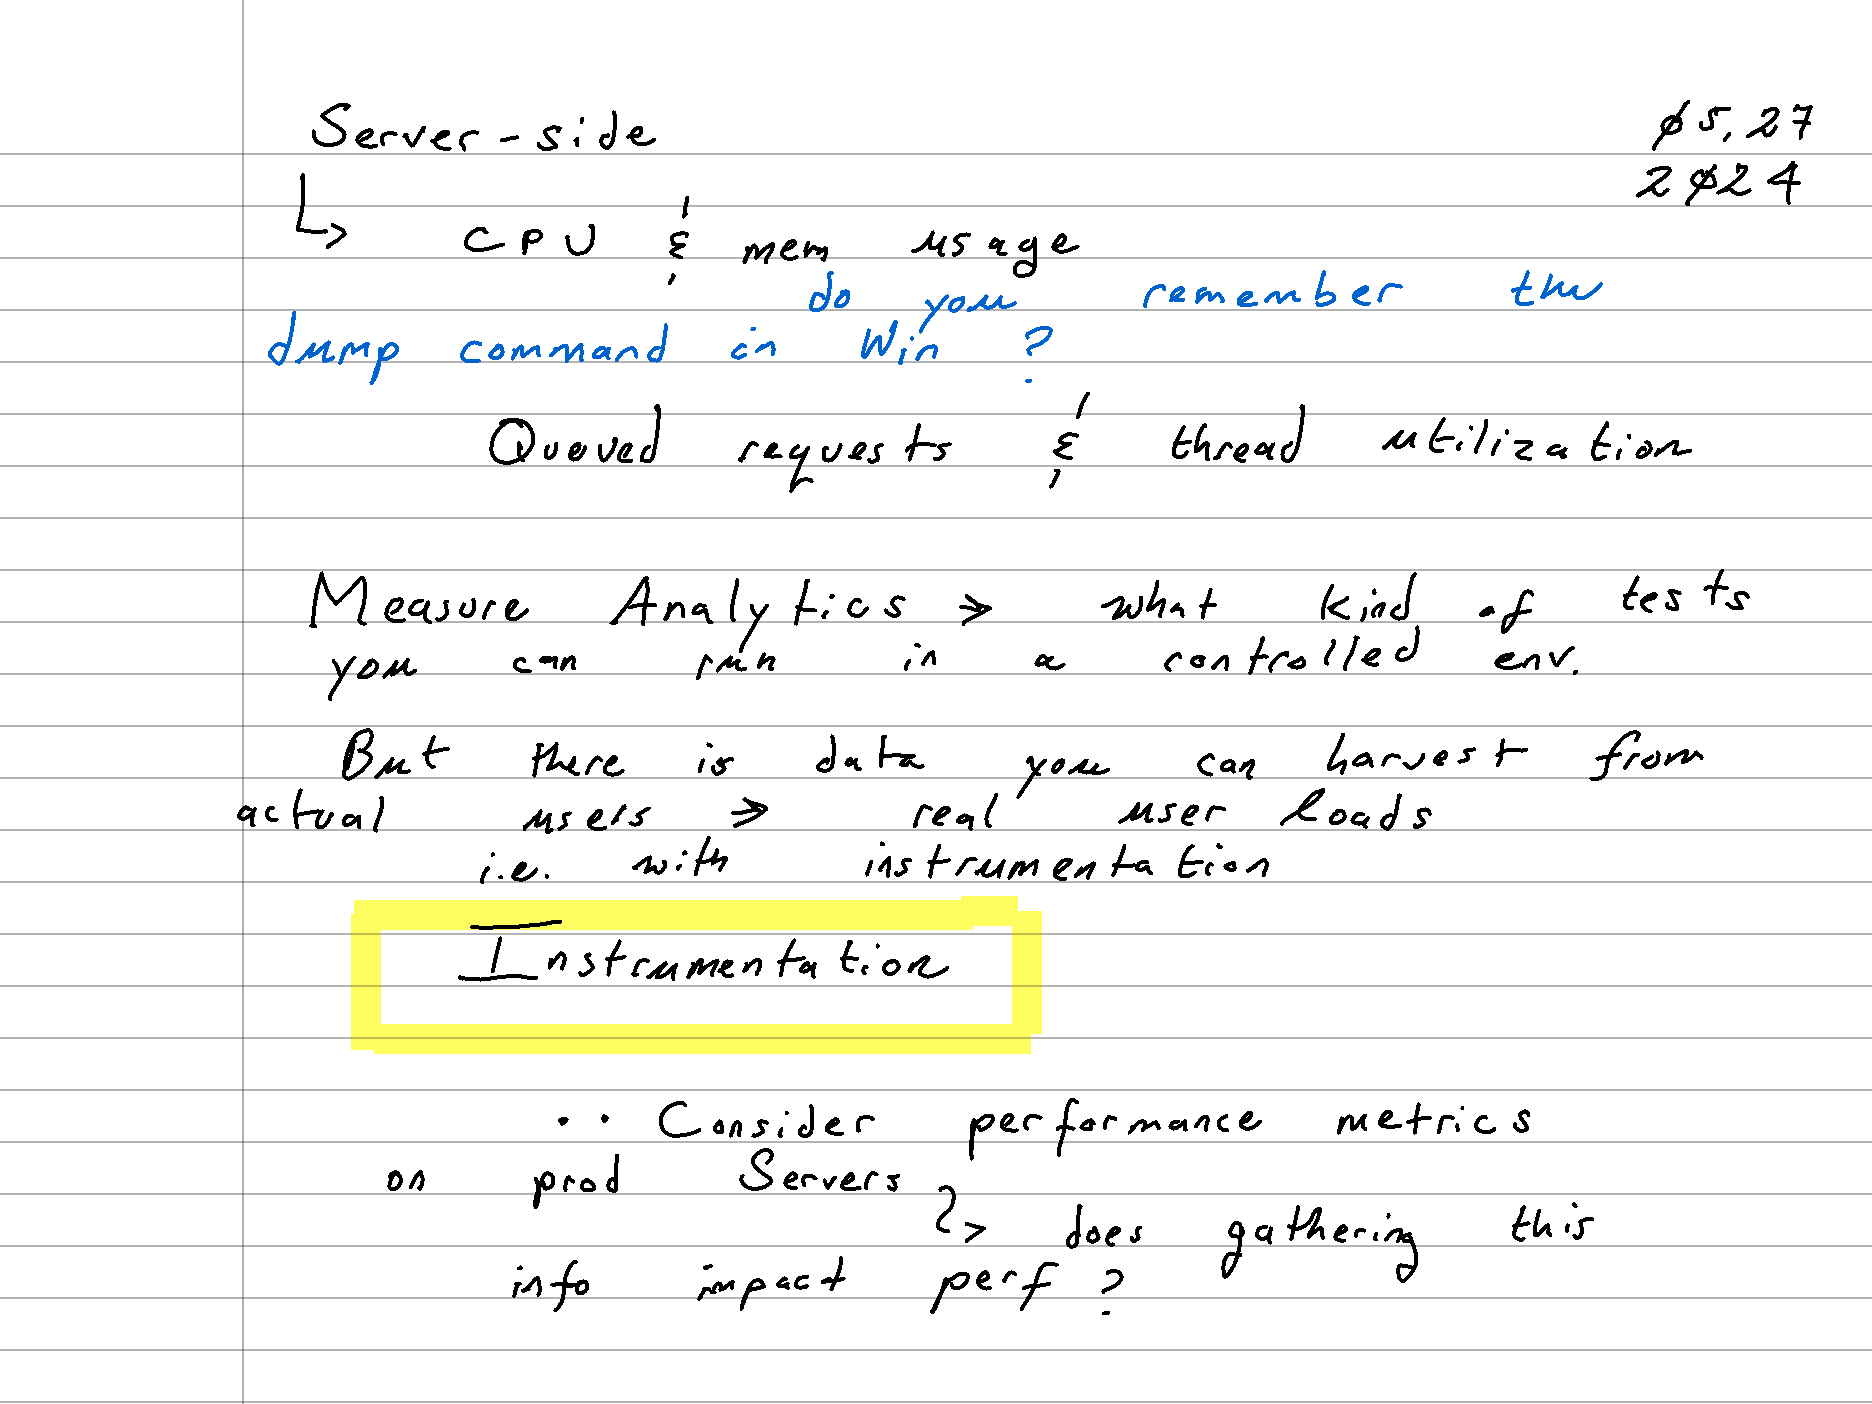 Server-side
05.27
2024
↳ CPU & mem usage
do you remember the
dump command in Win ?
Queued requests & thread utilization
Measure Analytics => what kind of tests
you can run in a controlled env.
But there is data you can harvest from
actual users => real user loads
i.e. with instrumentation
Instrumentation
.. Consider performance metrics
on prod Servers
↳ does gathering this
info impact perf ?